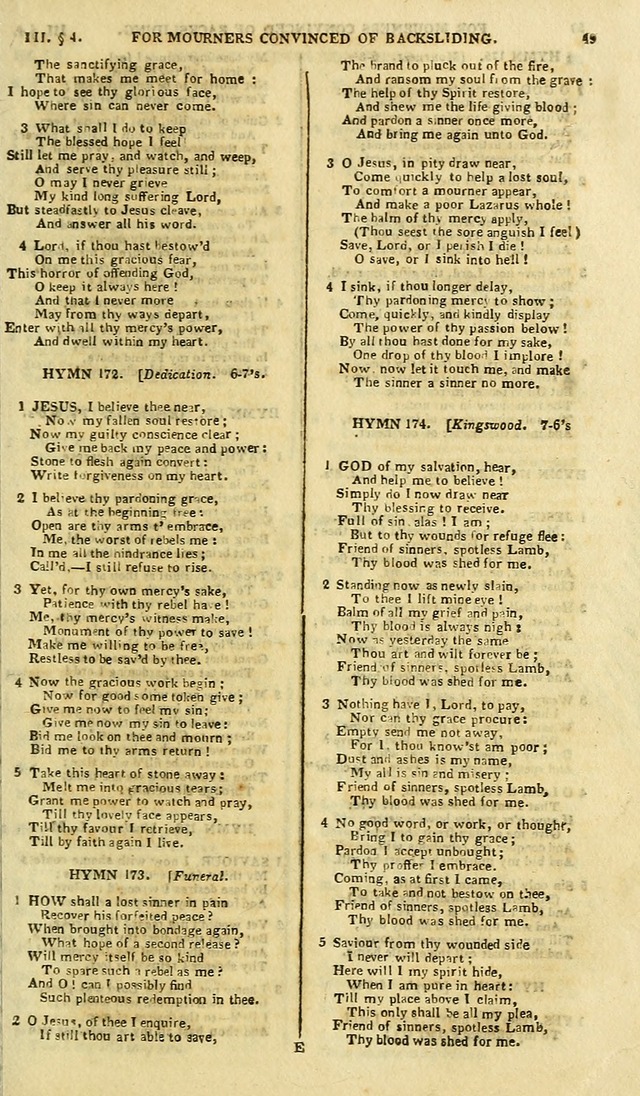 III. § 4. FOR MOURNERS CONVINCED OF BACKSLIDING. 49
The sanctifying grace,
That makes me meet for home :
I hope to see thy glorious face,
Where sin can never come.
3 What shall I do to keep
The blessed hope I feel
Still let me pray, and watch, and weep,
And serve thy pleasure still ;
O may I never grieve
My kind long suffering Lord,
But steadfastly to Jesus cleave,
And answer all his word.
4 Lord, if thou hast bestow'd
On me this gracious fear,
This horror of offending God,
O keep it always here !
And that I never more
May from thy ways depart,
Enter with all thy mercy's power,
And dwell within my heart.
HYMN 172. [Dedication. 6-7's.
1 JESUS, I believe thee near,
Now my fallen soul restore ;
Now my guilty conscience clear ;
Give me back my peace and power :
Stone to flesh again convert :
Write forgiveness on my heart.
2 I believe thy pardoning grace,
As at the beginning free :
Open are thy arms t' embrace,
Me, the worst of rebels me :
In me all the hindrance lies ;
Call'd,—I still refuse to rise.
3 Yet, for thy own mercy's sake,
Patience with thy rebel have !
Me, thy mercy's witness make,
Monument of thy power to save !
Make me willing to be free,
Restless to be sav'd by thee.
4 Now the gracious work begin ;
Now for good some token give ;
Give me now to feel my sin;
Give me now my sin to leave:
Bid me look on thee and mourn ;
Bid me to thy arms return !
5 Take this heart of stone away :
Melt me into gracious tears;
Grant me power to watch and pray,
Till thy lovely face appears,
Till thy favour I retrieve,
Till by faith again I live.
HYMN 173. [Funeral.
1 HOW shall a lost sinner in pain
Recover his forfeited peace ?
When brought into bondage again,
What hope of a second release ?
Will mercy itself be so kind
To spare such a rebel as me ?
And O ! can I possibly find
Such plenteous redemption in thee.
2 O Jesus, of thee I enquire,
If still thou art able to save,
The brand to pluck out of the fire,
And ransom my soul from the grave :
The help of thy Spirit restore,
And shew me the life giving blood ;
And pardon a sinner once more,
And bring me again unto God.
3 O Jesus, in pity draw near,
Come quickly to help a lost soul,
To comfort a mourner appear,
And make a poor Lazarus whole !
The balm of thy mercy apply,
(Thou seest the sore anguish I feel)
Save, Lord, or I perish I die !
O save, or I sink into hell !
4 I sink, if thou longer delay,
Thy pardoning mercy to show ;
Come, quickly, and kindly display
The power of thy passion below !
By all thou hast done for my sake,
One drop of thy blood I implore !
Now, now let it touch me, and make
The sinner a sinner no more.
HYMN 174. [Kingswood. 7-6's
1 GOD of my salvation, hear,
And help me to believe !
Simply do I now draw near
Thy blessing to receive.
Full of sin, alas ! I am ;
But to thy wounds for refuge flee :
Friend of sinners, spotless Lamb,
Thy blood was shed for me.
2 Standing now as newly slain,
To thee I lift mine eye !
Balm of all my grief and pain,
Thy blood is always nigh :
Now as yesterday the same
Thou art and wilt forever be ;
Friend of sinners, spotless Lamb,
Thy blood was shed for me.
3 Nothing have I, Lord, to pay,
Nor can thy grace procure:
Empty send me not away,
For I, thou know'st am poor ;
Dust and ashes is my name,
My all is sin and misery ;
Friend of sinners, spotless Lamb,
Thy blood was shed for me.
4 No good word, or work, or thought,
Bring I to gain thy grace ;
Pardon I accept unbought;
Thy proffer I embrace.
Coming, as at first I came,
To take and not bestow on thee,
Friend of sinners, spotless Lamb,
Thy blood was shed for me.
5 Saviour from thy wounded side
I never will depart ;
Here will I my spirit hide,
When I am pure in heart:
Till my place above I claim,
This only shall be all my plea,
Friend of sinners, spotless Lamb,
Thy blood was shed for me.
E